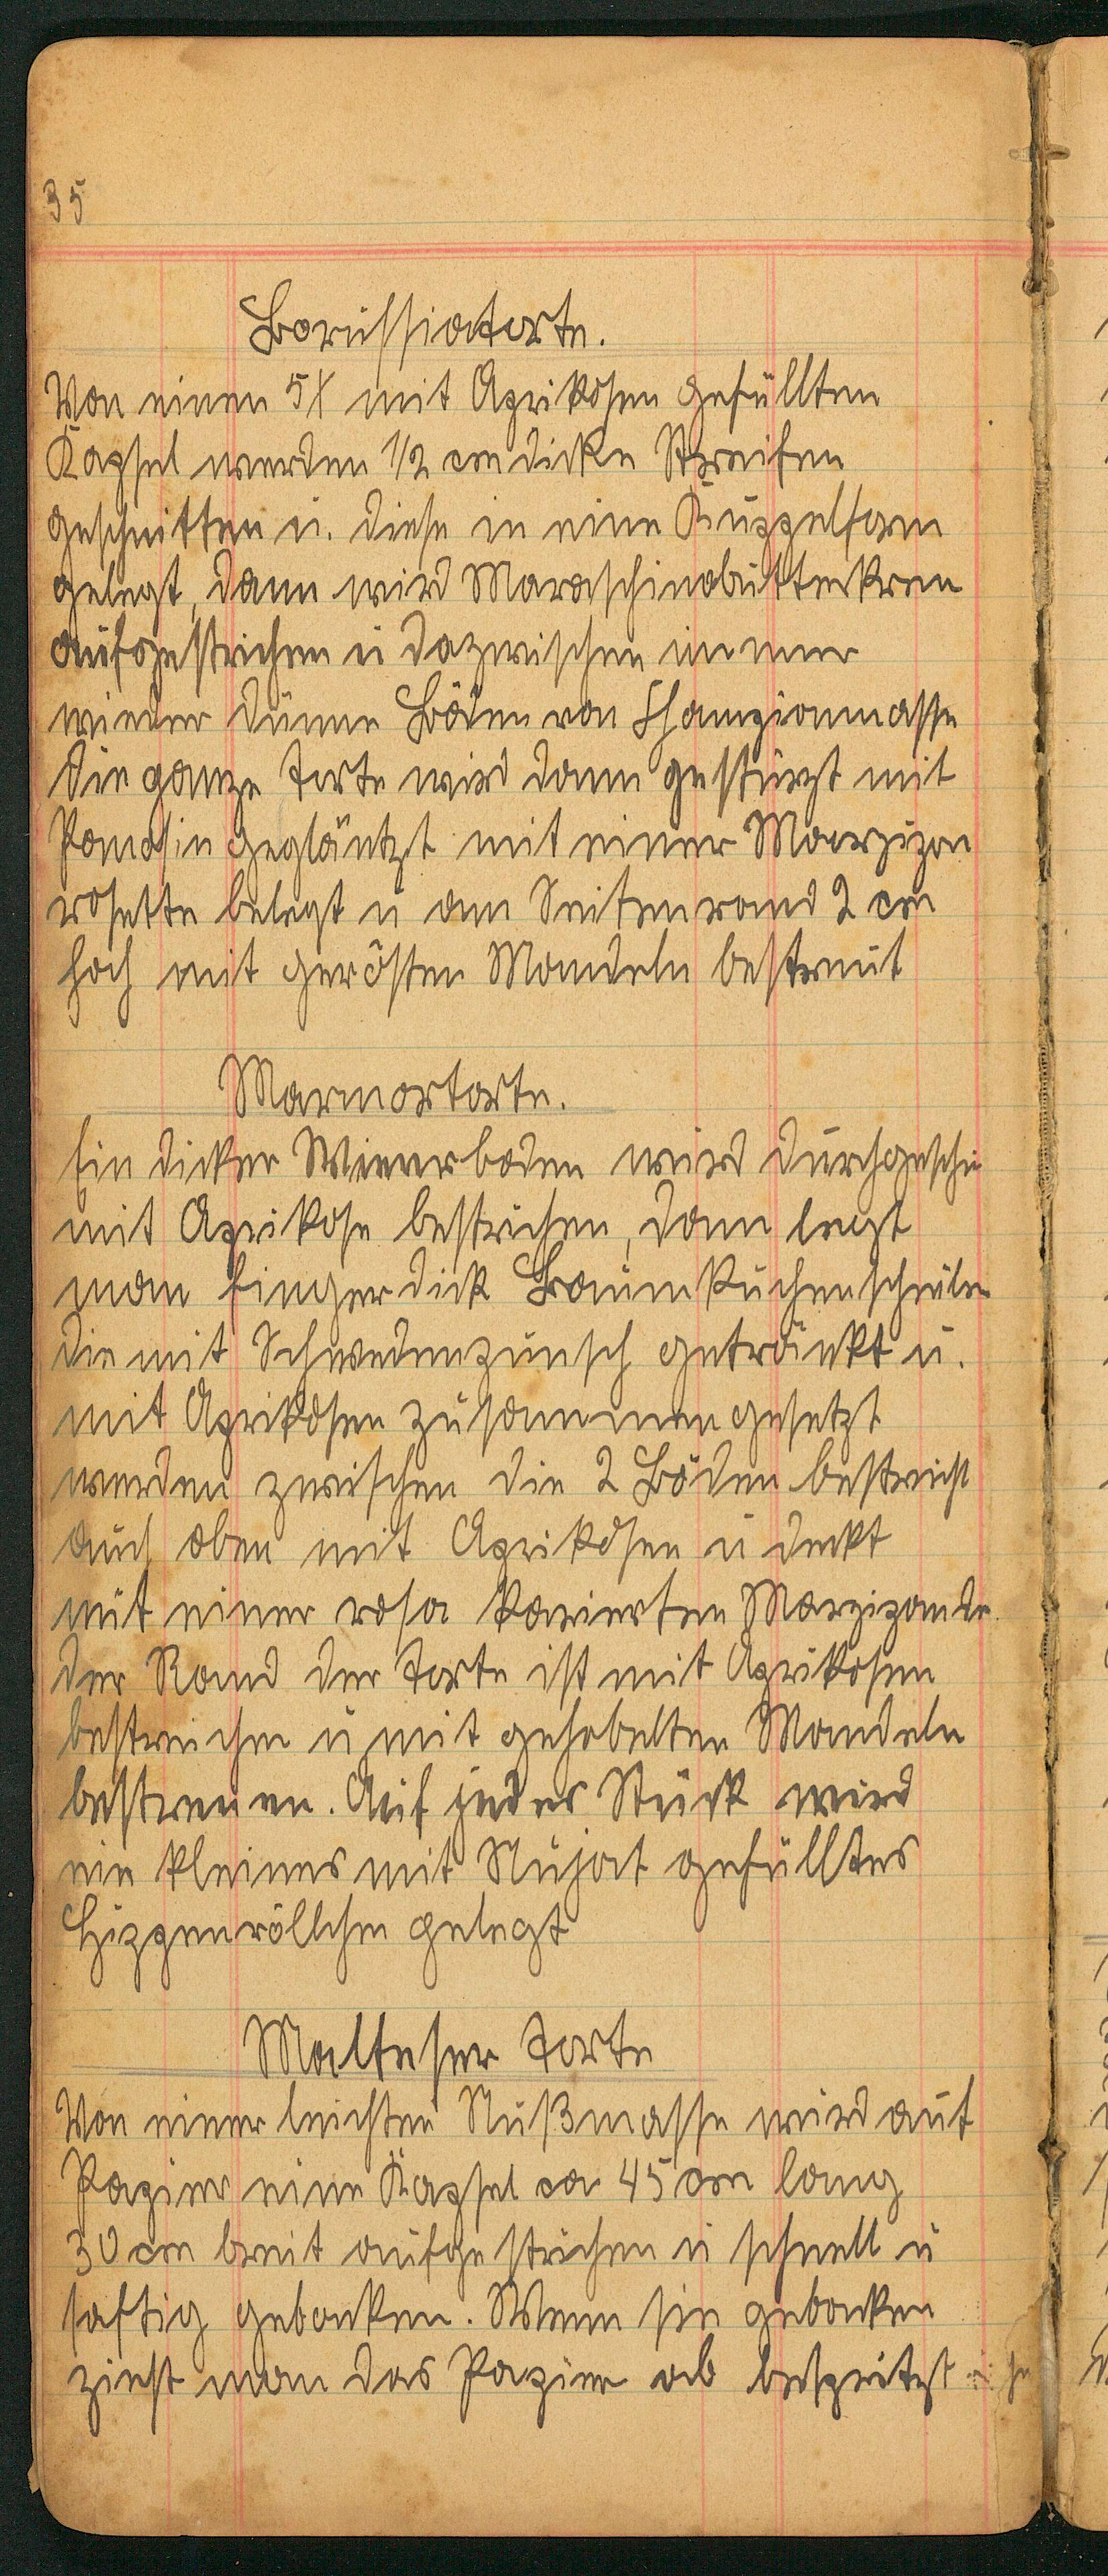 35
Borussiatorte.
Von einen 5X mit Aprikosen gefüllten
Kapsel werden 1/2 cm dicke Streifen
geschnitten u. diese in eine Kuppelform
gelegt, dann wird Maraschinobutterkrem
aufgestrichen u dazwischen immer
wieder dünne Böden von Championmasse
Die ganze Torte wird dann gestürzt mit
Pomosin geglänzt mit einer Marzipan
rosette belegt u am Seitenrand 2 cm
hoch mit gerösten Mandeln bestreut
Marmortorte.
Ein dicker Wienerboden wird durchgeschn
mit Aprikose bestrichen, dann legt
man fingerdick Baumkuchenscheiben
die mit Schwedenpunsch getränkt u.
mit Aprikosen zusammengesetzt
werden zwischen die 2 Böden bestreicht
auch oben mit Aprikosen u deckt
mit einer rosa karierten Marzipande
der Rand der Torte ist mit Aprikosen
bestreichen u mit gehobelten Mandeln
bestreuen. Auf jedes Stück wird
ein kleines mit Nujat gefülltes
Hippenröllchen gelegt
Malteser Torte
Von einer leichten Nußmasse wird auf
Papier eine Kapsel ca 45 cm lang
30 cm breit aufgestrichen u schnell u
saftig gebacken. Wenn sie gebacken
zieht man das Papier ab bespritzt